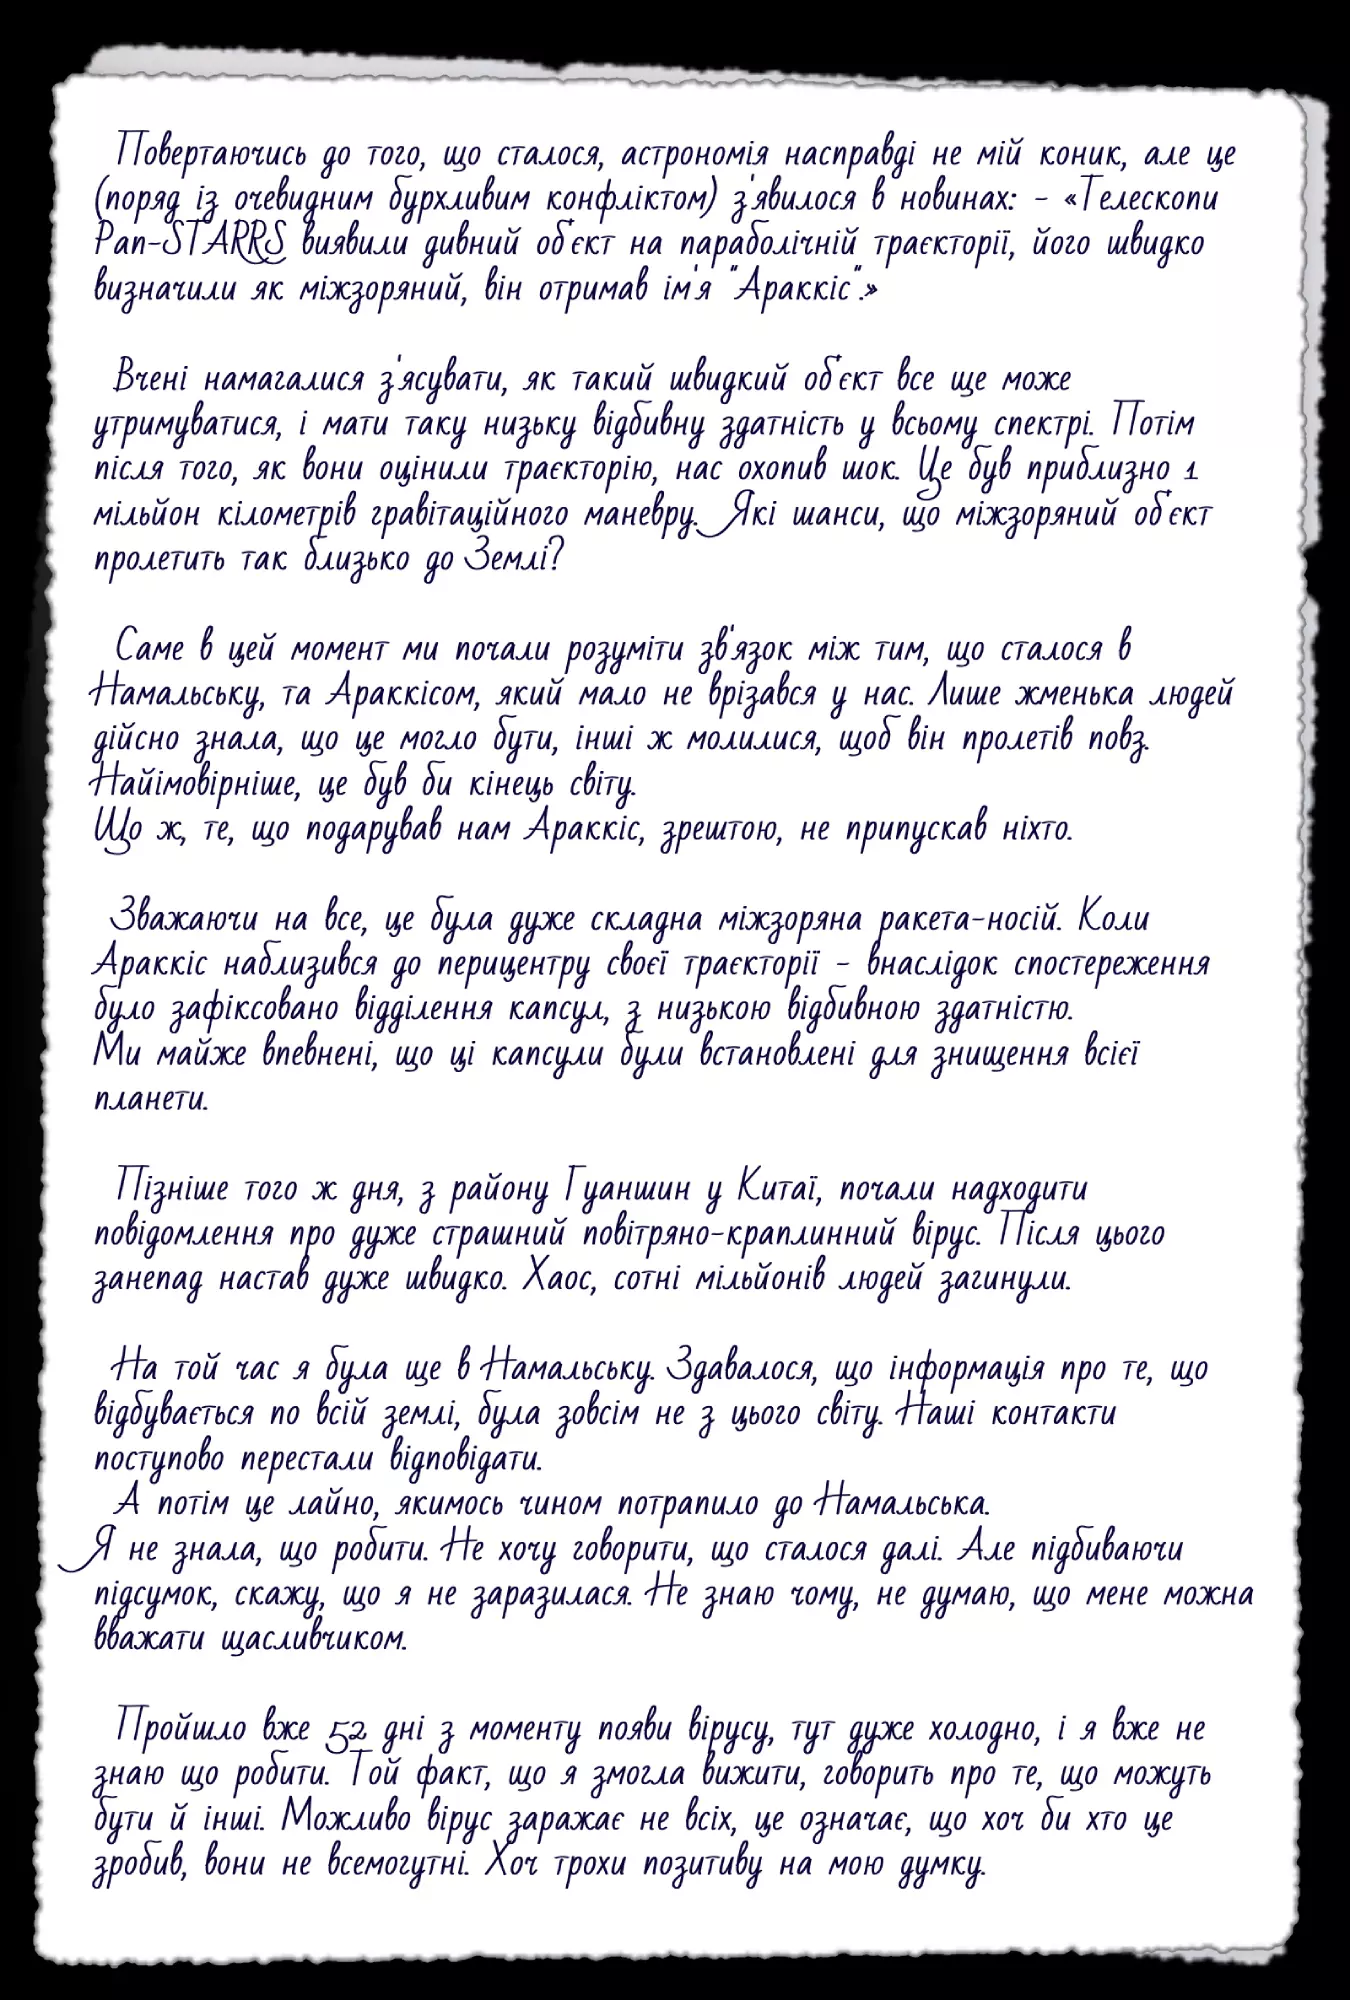 Повертаючись до того, що сталося, астрономія насправді не мій коник, але це
(поряд із очевидним бурхливим конфліктом) з'явилося в новинах: - «Телескопи
Pan-STARRS виявили дивний об'єкт на параболічній траєкторії, його швидко
визначили як міжзоряний, він отримав ім'я "Араккіс".»
Вчені намагалися з'ясувати, як такий швидкий об'єкт все ще може
утримуватися, і мати таку низьку відбивну здатність у всьому спектрі. Потім
після того, як вони оцінили траєкторію, нас охопив шок. Це був приблизно 1
мільйон кілометрів гравітаційного маневру. Які шанси, що міжзоряний об'єкт
пролетить так близько до Землі?
Саме в цей момент ми почали розуміти зв'язок між тим, що сталося в
Намальську, та Араккісом, який мало не врізався у нас. Лише жменька людей
дійсно знала, що це могло бути, інші ж молилися, щоб він пролетів повз.
Найімовірніше, це був би кінець світу.
Що ж, те, що подарував нам Араккіс, зрештою, не припускав ніхто.
Зважаючи на все, це була дуже складна міжзоряна ракета-носій. Коли
Араккіс наблизився до перицентру своєї траєкторії - внаслідок спостереження
було зафіксовано відділення капсул, з низькою відбивною здатністю.
Ми майже впевнені, що ці капсули були встановлені для знищення всієї
планети.
Пізніше того ж дня, з району Гуаншин у Китаї, почали надходити
повідомлення про дуже страшний повітряно-краплинний вірус. Після цього
занепад настав дуже швидко. Хаос, сотні мільйонів людей загинули.
На той час я була ще в Намальську. Здавалося, що інформація про те, що
відбувається по всій землі, була зовсім не з цього світу. Наші контакти
поступово перестали відповідати.
А потім це лайно, якимось чином потрапило до Намальська.
Я не знала, що робити. Не хочу говорити, що сталося далі. Але підбиваючи
підсумок, скажу, що я не заразилася. Не знаю чому, не думаю, що мене можна
вважати щасливчиком.
Пройшло вже 52 дні з моменту появи вірусу, тут дуже холодно, і я вже не
знаю що робити. Той факт, що я змогла вижити, говорить про те, що можуть
бути й інші. Можливо вірус заражає не всіх, це означає, що хоч би хто це
зробив, вони не всемогутні. Хоч трохи позитиву на мою думку.